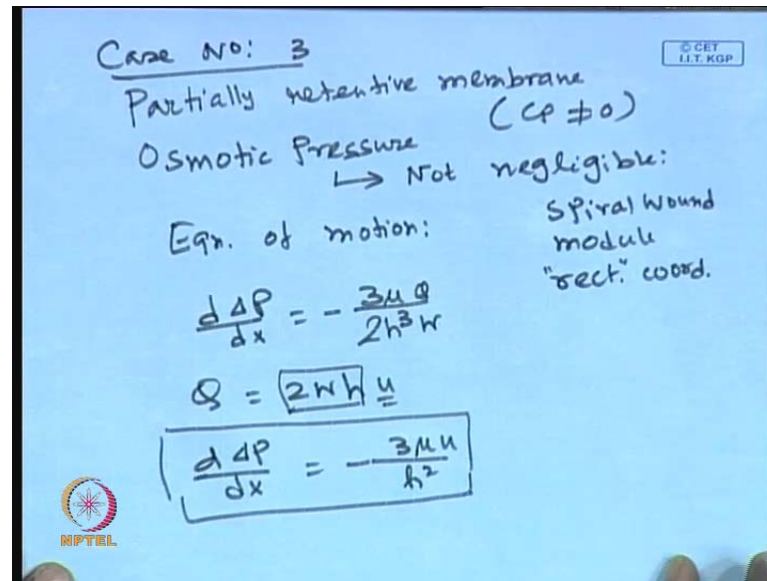 Case No: 3
© CET
I.I.T. KGP
Partially retentive membrane
(Cp ≠ 0)
Osmotic Pressure
↳ Not negligible:
Eqn. of motion:
Spiral wound
module
"rect." coord.
dΔP/dx = - 3μQ/2h³W
Q = 2Wh u
dΔP/dx = - 3μu/h²
NPTEL